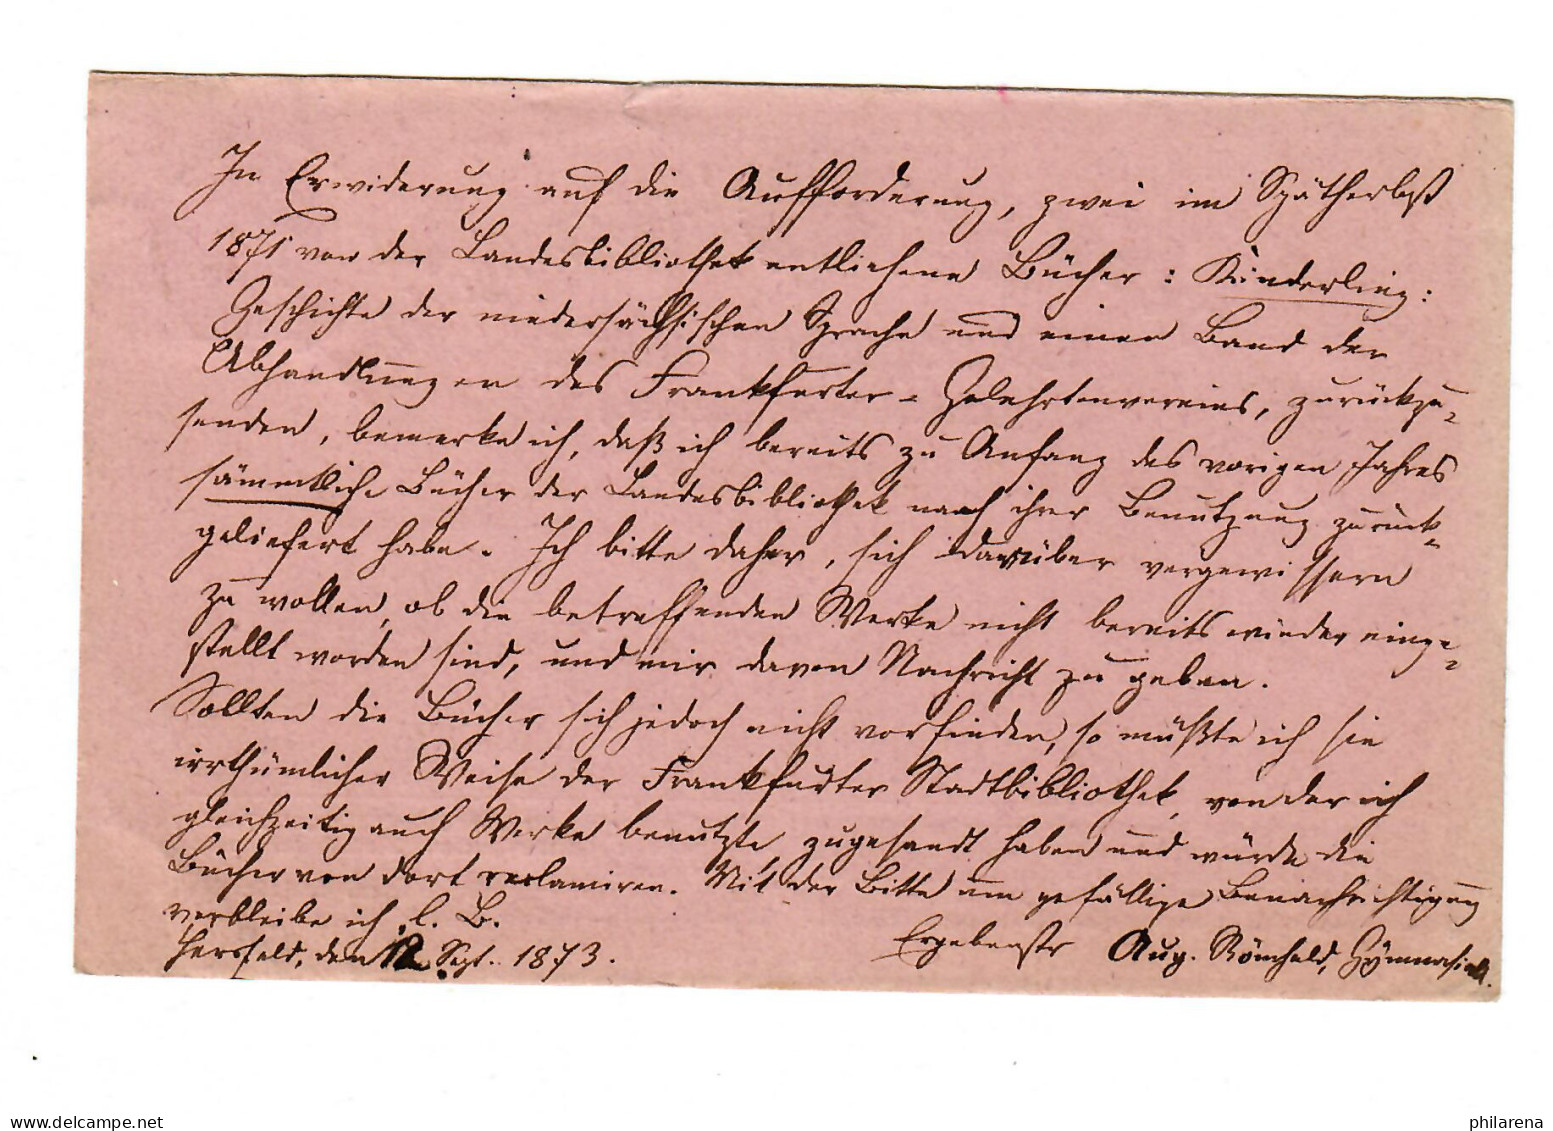 In Erwiderung auf die Aufforderung, zwei im Spätherbst
1871 von der Landesbibliothek entliehene Bücher: Kinderling:
Geschichte der niedersächsischen Sprache und einen Band der
Abhandlungen des Frankfurter-Gelehrtenvereins, zurückzu-
senden, bemerke ich, daß ich bereits zu Anfang des vorigen Jahres
sämmtliche Bücher der Landesbibliothek nach ihrer Benutzung zurück-
geliefert habe. Ich bitte daher, sich darüber vergewissern
zu wollen, ob die betreffenden Werke nicht bereits wieder einge-
stellt worden sind, und mir davon Nachricht zu geben.
Sollten die Bücher sich jedoch nicht vorfinden, so müßte ich sie
irrthümlicher Weise der Frankfurter Stadtbibliothek, von der ich
gleichzeitig auch Werke benutzte, zugesandt haben und würde die
Bücher von dort reclamiren. Mit der Bitte um gefällige Benachrichtigung
verbleibe ich
Hersfeld, den 12 Sept. 1873. Ergebenster Aug. Römheld,
philarena.com